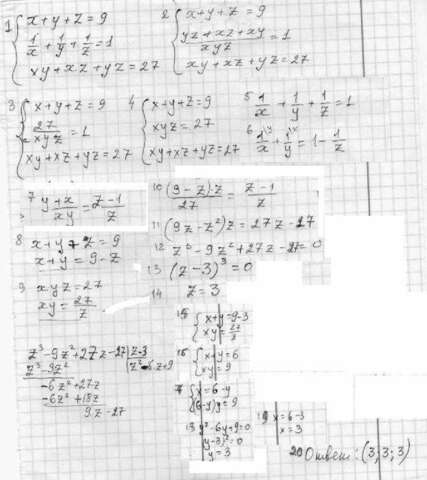 1 { x+y+z=9
1/x + 1/y + 1/z = 1
xy+xz+yz=27
2 { x+y+z=9
(yz+xz+xy)/xyz = 1
xy+xz+yz=27
3 { x+y+z=9
27/xyz = 1
xy+xz+yz=27
4 { x+y+z=9
xyz=27
xy+xz+yz=27
5 1/x + 1/y + 1/z = 1
6 1/x + 1/y = 1 - 1/z
7 (y+x)/xy = (z-1)/z
8 x+y+z=9
x+y=9-z
9 xyz=27
xy=27/z
10 (9-z)·z/27 = (z-1)/z
11 (9z-z²)z=27z-27
12 z³-9z²+27z-27=0
13 (z-3)³=0
14 z=3
z³-9z²+27z-27 | z-3
z³-9z² | z²-6z+9
-6z²+27z
-6z²+18z
9z-27
15 { x+y=9-3
xy=27/z
16 { x+y=6
xy=9
17 { x=6-y
(6-y)y=9
18 y²-6y+9=0
(y-3)²=0
y=3
19 x=6-3
x=3
20 Ответ: (3;3;3)